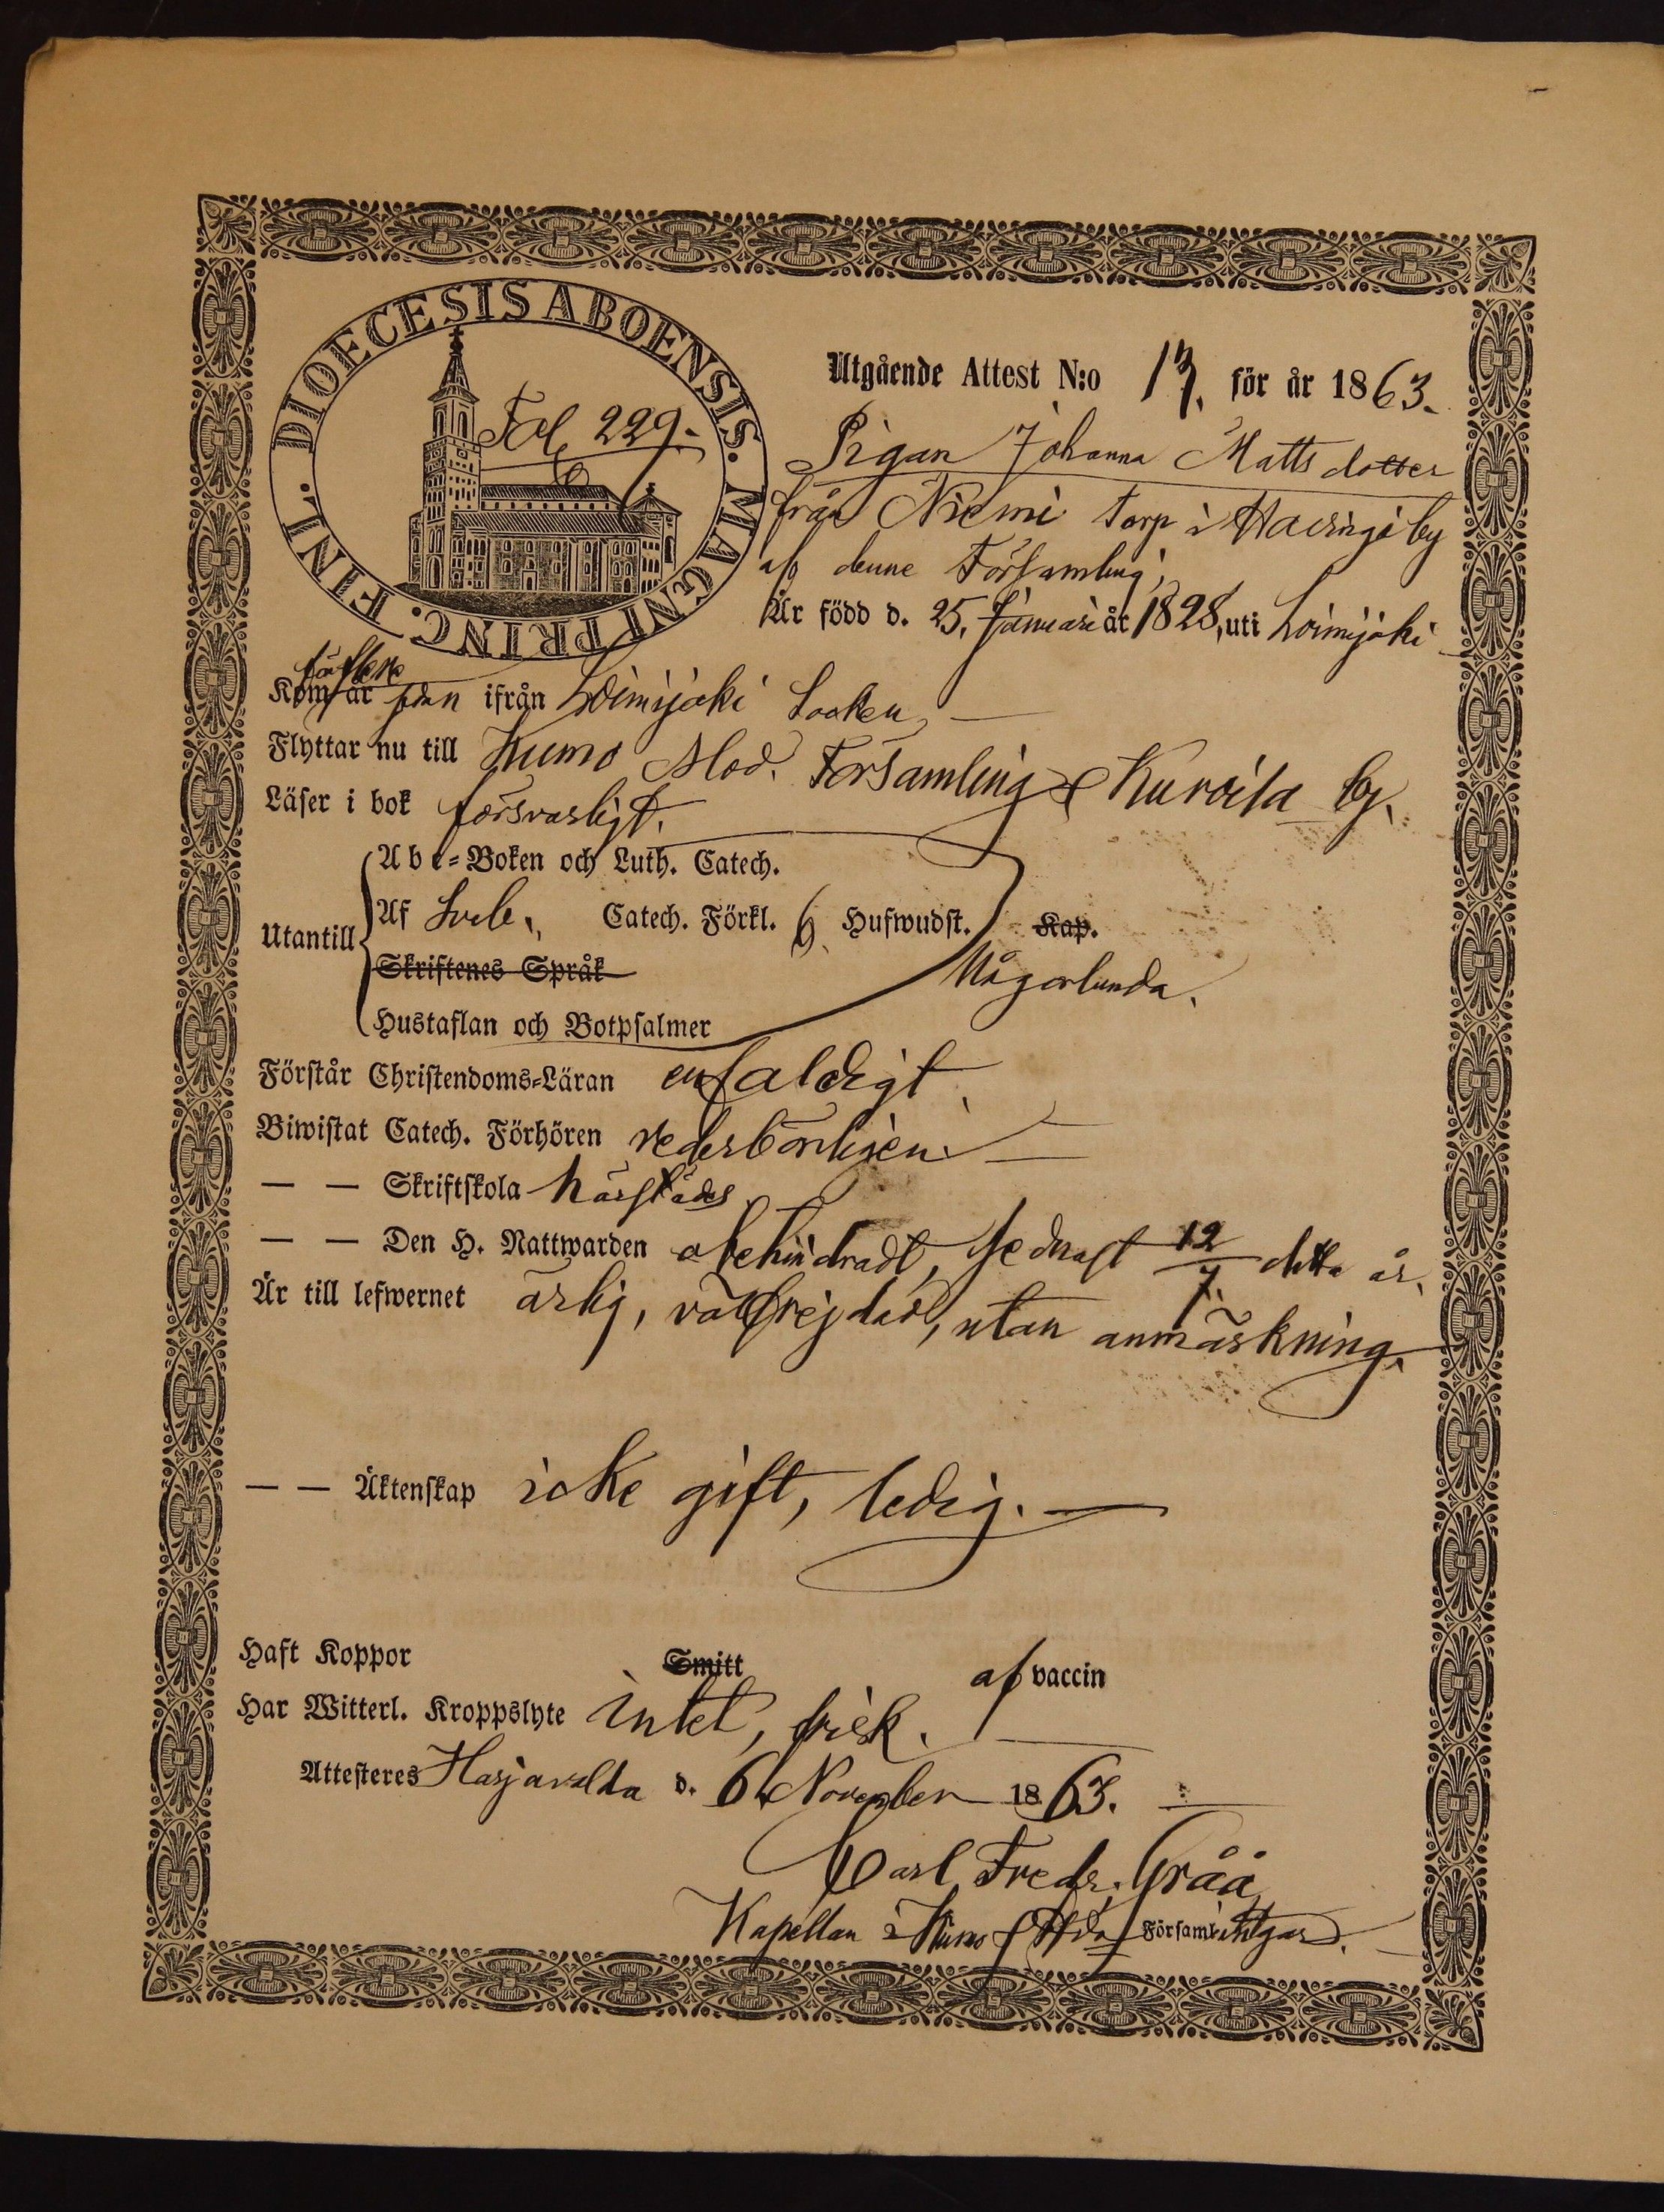 DIOECESIS ABOENSIS. MAGNI PRINC. FINL.
Fol. 229.
Utgående Attest N:o 13. för år 1863.
Pigan Johanna Mattsdotter
från Niemi torp i by
af denne Församling,
Är född d. 25. Januari år 1828, uti Loimijoki
Kom år ifrån Loimijoki Socken
Flyttar nu till Kumo Mod. Församling & Kuroila by.
Läser i bok försvarligt.
Abc-Boken och Luth. Catech.
Utantill Af Sveb. Catech. Förkl. 6 Hufwudst. Kap.
Skriftenes Språk Någorlunda.
Hustaflan och Botpsalmer
Förstår Christendoms-Läran enfaldigt
Biwistat Catech. Förhören vederbörligen.
— — Skriftskola härstädes
— — Den H. Nattwarden obehindradt, sednast 12/7. detta år.
Är till lefwernet ärlig, välfrejdad, utan anmärkning.
— — Äktenskap icke gift, ledig.
Haft Koppor Smitt af vaccin
Har Witterl. Kroppslyte intet, frisk.
Attesteres Harjavalda d. 6 November 1863.
Carl Fredr. Gråå
Kapellan i Församlingar.